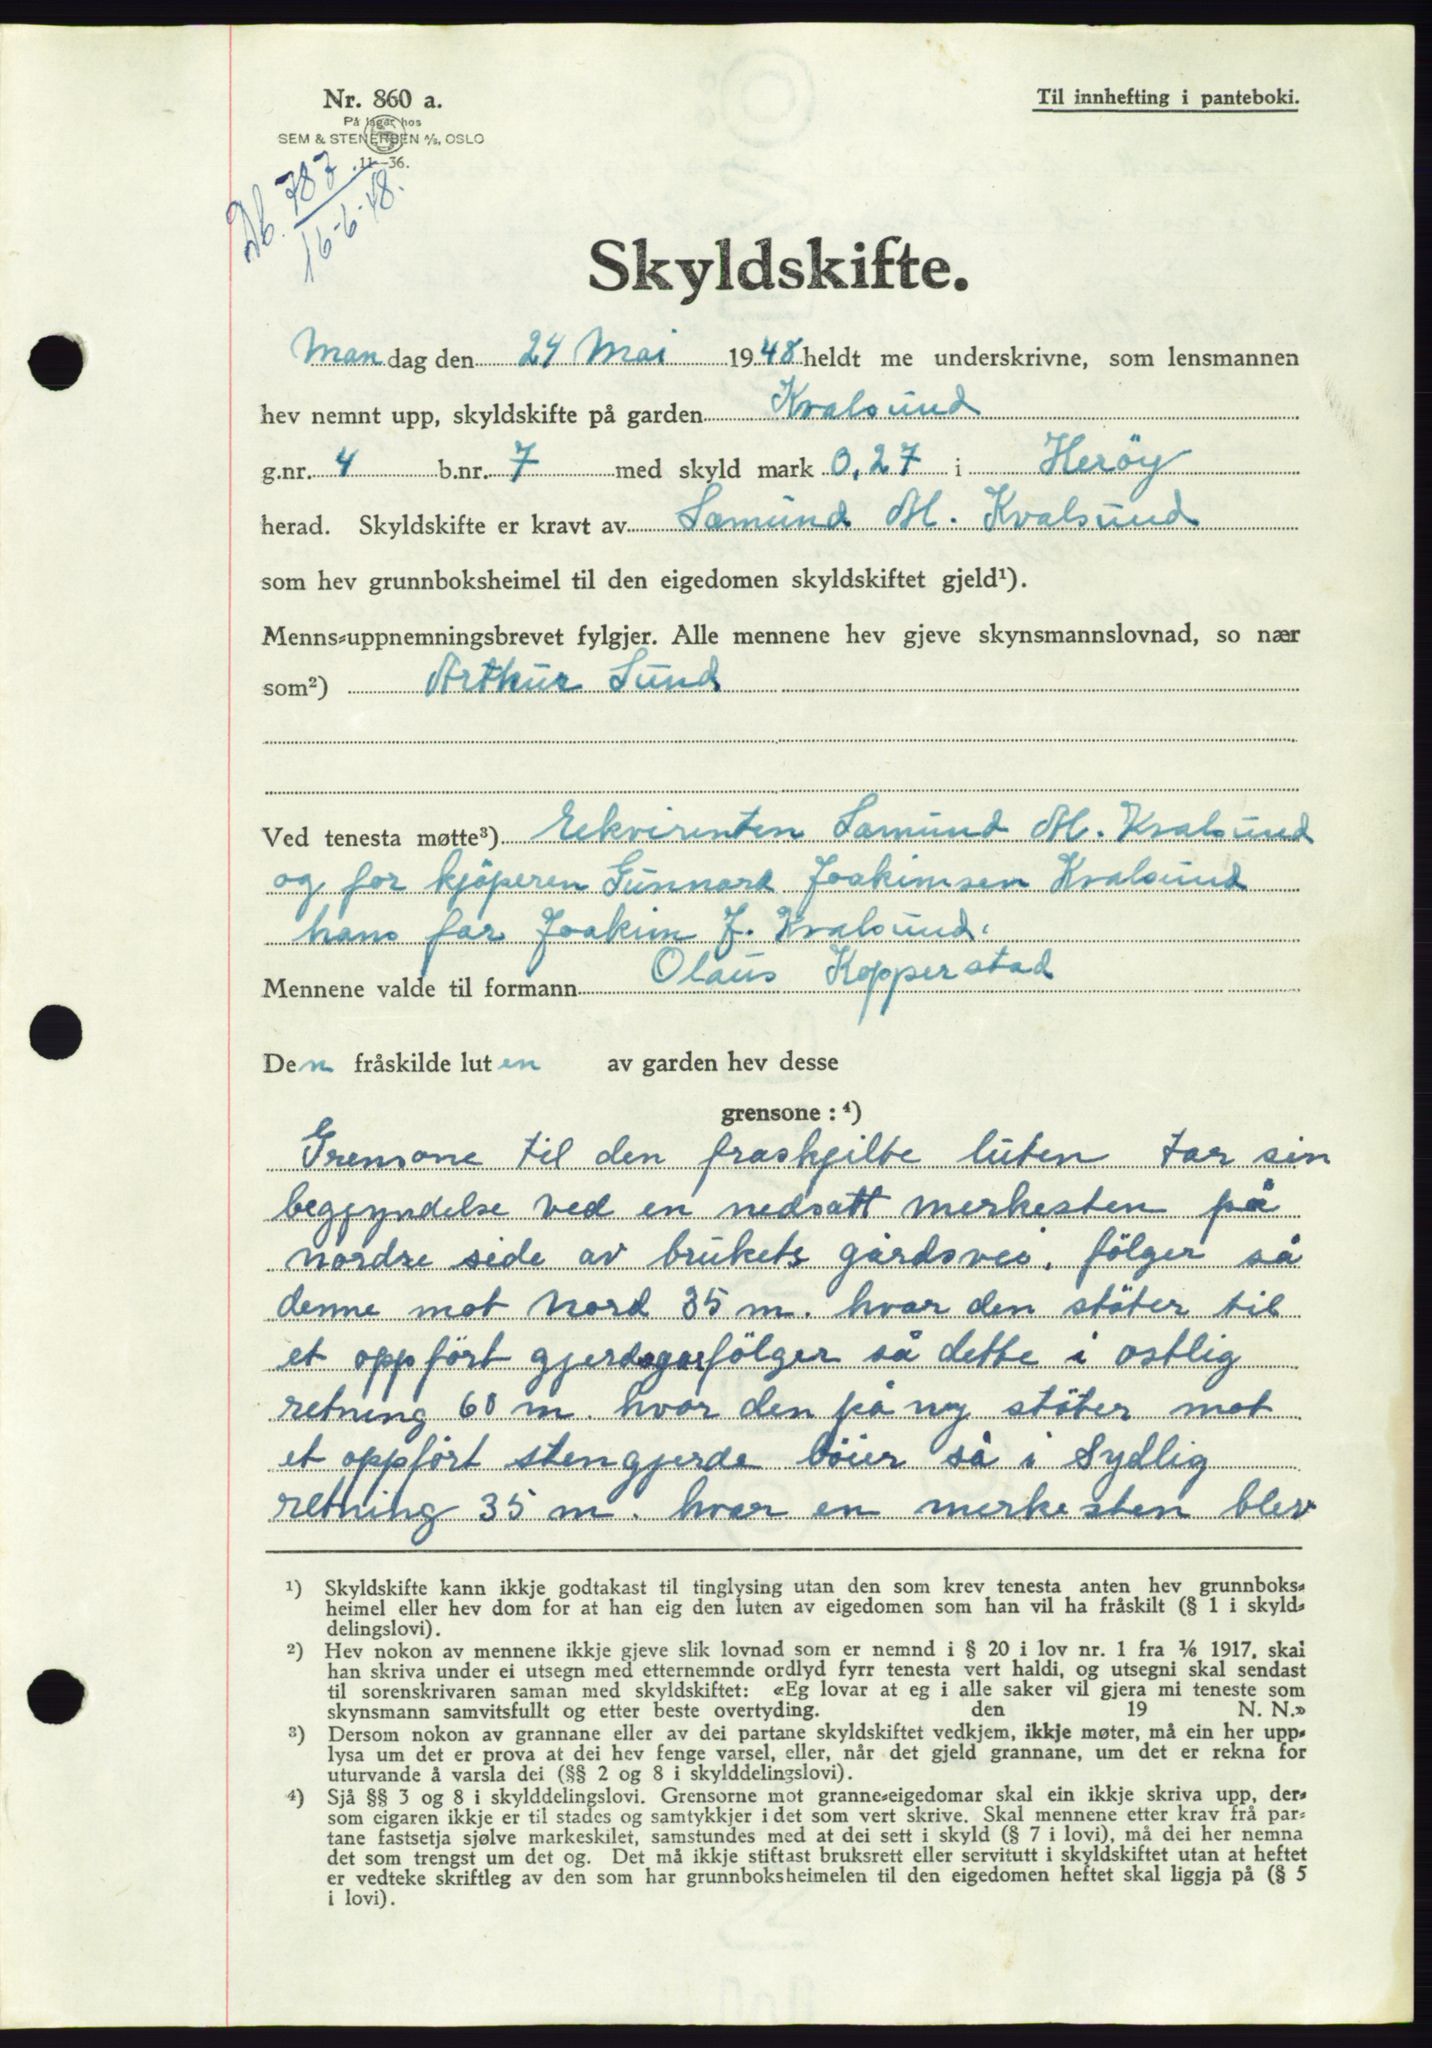 Nr. 860 a.
På lager hos
SEM & STENERSEN A/S, OSLO
11—36.
Til innhefting i panteboki.
Db. 787
16-6-48.
Skyldskifte.
Mandag den 24 Mai 1948 heldt me underskrivne, som lensmannen
hev nemnt upp, skyldskifte på garden Kvalsund
g.nr. 4 b.nr. 7 med skyld mark 0,27 i Herøy
herad. Skyldskifte er kravt av Samund M. Kvalsund
som hev grunnboksheimel til den eigedomen skyldskiftet gjeld¹).
Menns-uppnemningsbrevet fylgjer. Alle mennene hev gjeve skynsmannslovnad, so nær
som²) Arthur Sund
Ved tenesta møtte³) rekvirenten Samund M. Kvalsund
og for kjöperen Gunnard Joakimsen Kvalsund
hans far Joakim J. Kvalsund.
Mennene valde til formann Olaus Kopperstad
Den fråskilde luten av garden hev desse
grensone :⁴)
Grensone til den fraskjilte luten tar sin
beggyndelse ved en nedsatt merkesten på
nordre side av brukets gårdsvei, fölger så
denne mot Nord 35 m. hvor den stöter til
et oppfört gjerdsgar fölger så dette i ostlig
retning 60 m. hvor den på ny stöter mot
et oppfört stengjerde böier så i Sydlig
retning 35 m. hvor en merkesten blev
¹) Skyldskifte kann ikkje godtakast til tinglysing utan den som krev tenesta anten hev grunnboks-
heimel eller hev dom for at han eig den luten av eigedomen som han vil ha fråskilt (§ 1 i skyld-
delingslovi).
²) Hev nokon av mennene ikkje gjeve slik lovnad som er nemnd i § 20 i lov nr. 1 fra 1/6 1917, skal
han skriva under ei utsegn med etternemnde ordlyd fyrr tenesta vert haldi, og utsegni skal sendast
til sorenskrivaren saman med skyldskiftet: «Eg lovar at eg i alle saker vil gjera mi teneste som
skynsmann samvitsfullt og etter beste overtyding. den 19 N. N.»
³) Dersom nokon av grannane eller av dei partane skyldskiftet vedkjem, ikkje møter, må ein her upp-
lysa um det er prova at dei hev fenge varsel, eller, når det gjeld grannane, um det er rekna for
uturvande å varsla dei (§§ 2 og 8 i skylddelingslovi).
⁴) Sjå §§ 3 og 8 i skylddelingslovi. Grensorne mot granne-eigedomar skal ein ikkje skriva upp, der-
som eigaren ikkje er til stades og samtykkjer i det som vert skrive. Skal mennene etter krav frå par-
tane fastsetja sjølve markeskilet, samstundes med at dei sett i skyld (§ 7 i lovi), må dei her nemna
det som trengst um det og. Det må ikkje stiftast bruksrett eller servitutt i skyldskiftet utan at heftet
er vedteke skriftleg av den som har grunnboksheimelen til den eigedomen heftet skal liggja på (§ 5
i lovi).